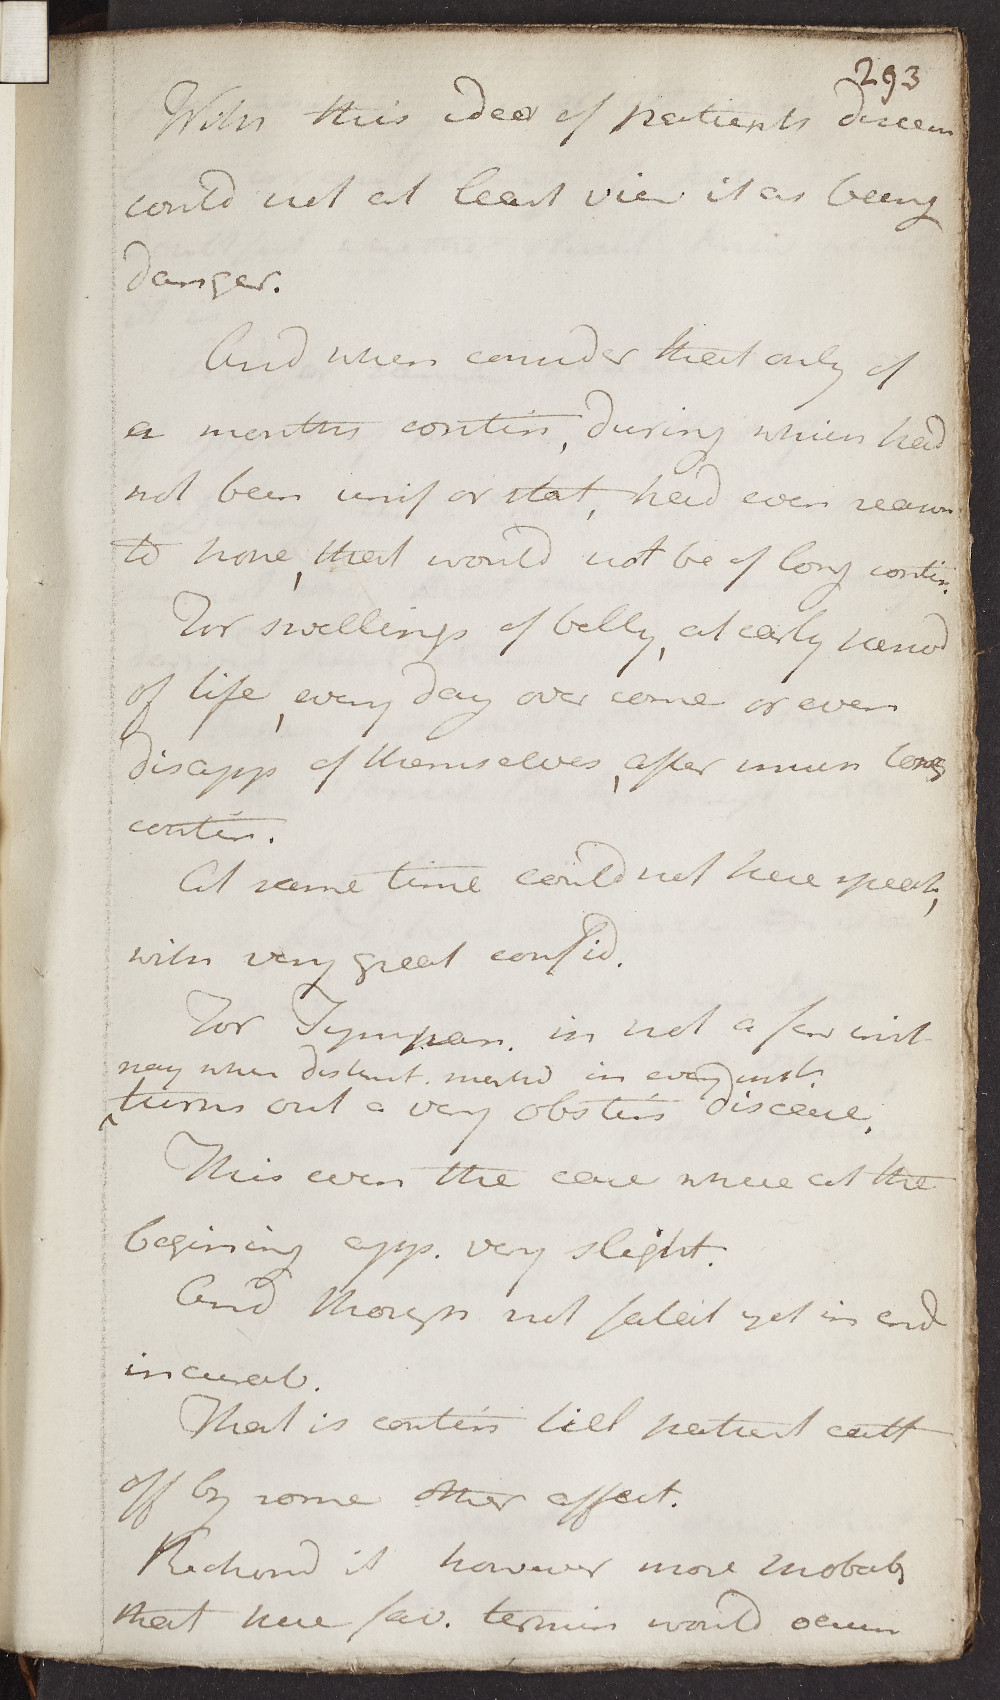 293
With this idea of patients disease
could not at least view it as being
danger.
And when consider that only of
a months contin, during which had
not been unif or stat, had even reason
to hope, that would not be of long contin.
For swellings of belly, at early period
of life, every day over come or even
disapp of themselves, after much long
contin.
At same time could not here speak,
with very great confid.
For Tympan. in not a few inst
nay when distinct. marked in every inst.
turns out a very obstin disease,
This even the case where at the
begining app. very slight.
And though not fatal yet in end
incurab.
That is contin till patient cutt
off by some other affect.
Reckond it however more probab
that here fav. termin would occur